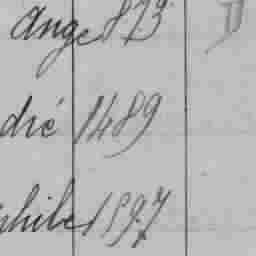 Ange 873
dré 1489
phile 1897